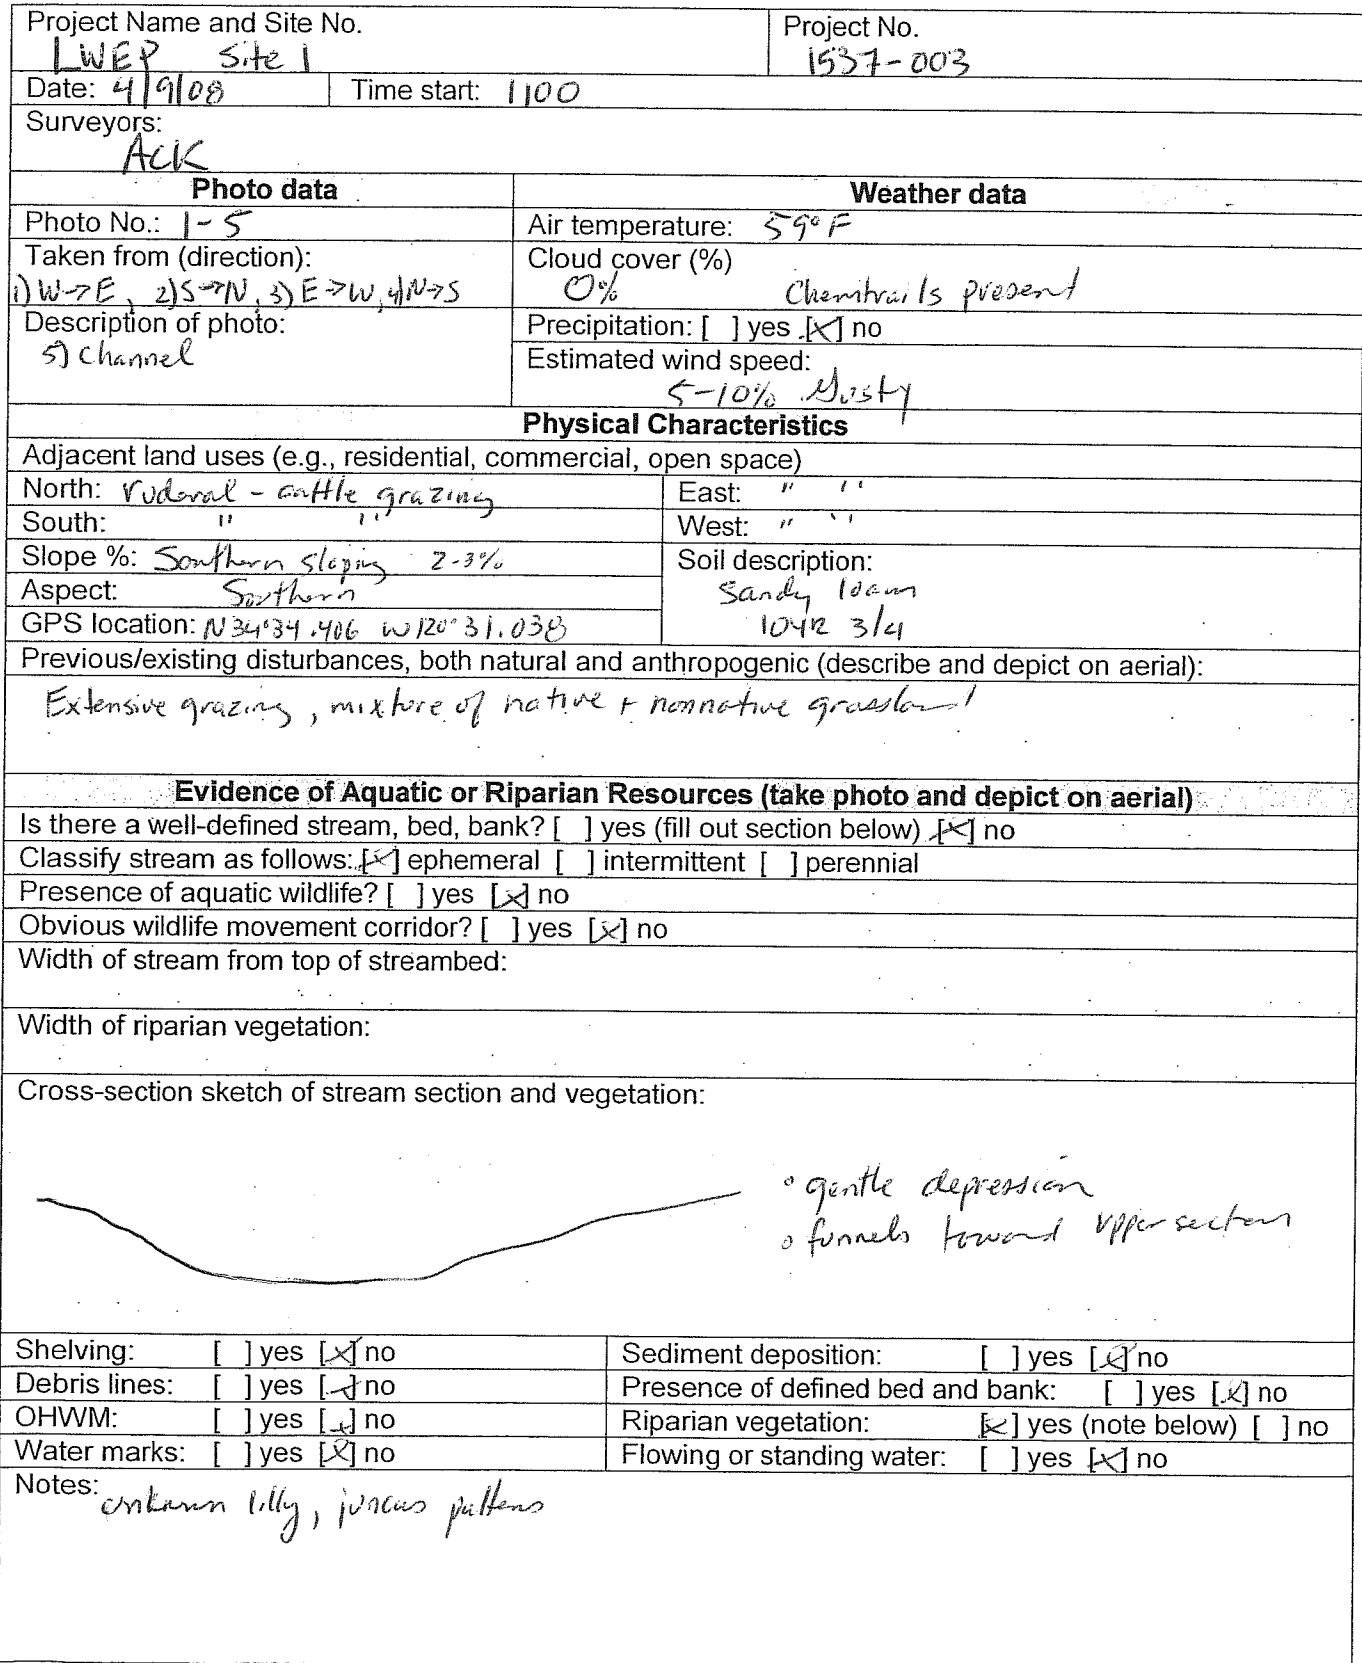 Project Name and Site No.
LWEP Site 1
Project No.
1537-003
Date: 4/9/08 Time start: 1100
Surveyors:
ACK
Photo data
Weather data
Photo No.: 1-5
Air temperature: 59°F
Taken from (direction):
1) W→E, 2) S→N, 3) E→W, 4) N→S
Cloud cover (%)
0% Chemtrails present
Description of photo:
5) Channel
Precipitation: [ ] yes [x] no
Estimated wind speed:
5-10% Gusty
Physical Characteristics
Adjacent land uses (e.g., residential, commercial, open space)
North: ruderal - cattle grazing
East: " "
South: " "
West: " "
Slope %: Southern sloping 2-3%
Soil description:
Sandy loam
10YR 3/4
Aspect: Southern
GPS location: N34°34.406 W120°31.038
Previous/existing disturbances, both natural and anthropogenic (describe and depict on aerial):
Extensive grazing, mixture of native + nonnative grassland
Evidence of Aquatic or Riparian Resources (take photo and depict on aerial)
Is there a well-defined stream, bed, bank? [ ] yes (fill out section below) [x] no
Classify stream as follows: [x] ephemeral [ ] intermittent [ ] perennial
Presence of aquatic wildlife? [ ] yes [x] no
Obvious wildlife movement corridor? [ ] yes [x] no
Width of stream from top of streambed:
Width of riparian vegetation:
Cross-section sketch of stream section and vegetation:
° gentle depression
° funnels toward upper section
Shelving: [ ] yes [x] no
Sediment deposition: [ ] yes [x] no
Debris lines: [ ] yes [x] no
Presence of defined bed and bank: [ ] yes [x] no
OHWM: [ ] yes [x] no
Riparian vegetation: [x] yes (note below) [ ] no
Water marks: [ ] yes [x] no
Flowing or standing water: [ ] yes [x] no
Notes: unknown lilly, juncus pattens